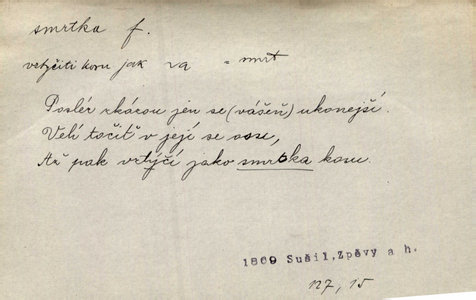 smrtka f.
vztyčiti kosu jak va = smrt
Poslér zkázou jen se (vášeň) ukonejší.
Velí točit v její se osu,
Až pak vztýčí jako smrtka kosu.
1869 Sušil, Zpěvy a h.
127, 15